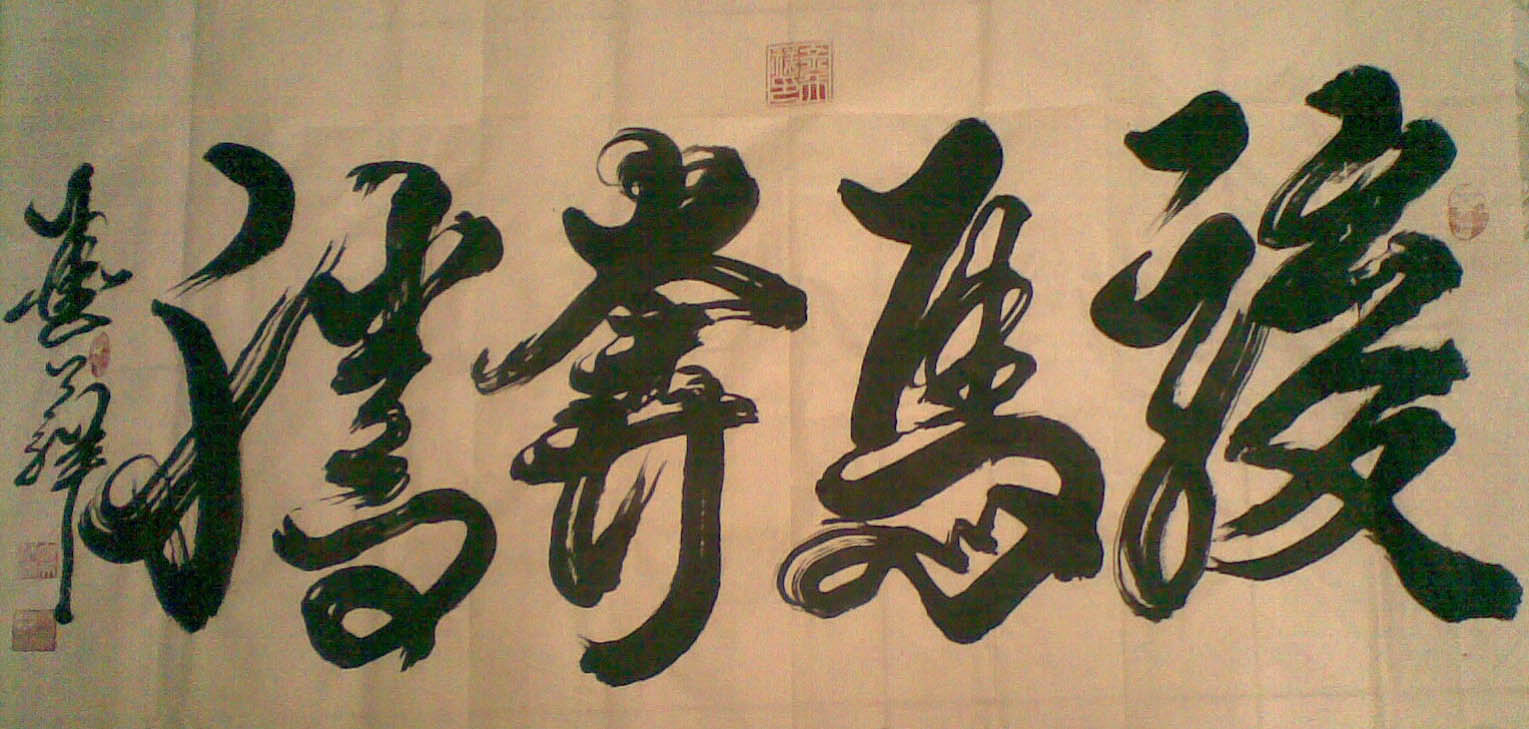 駿馬奔騰